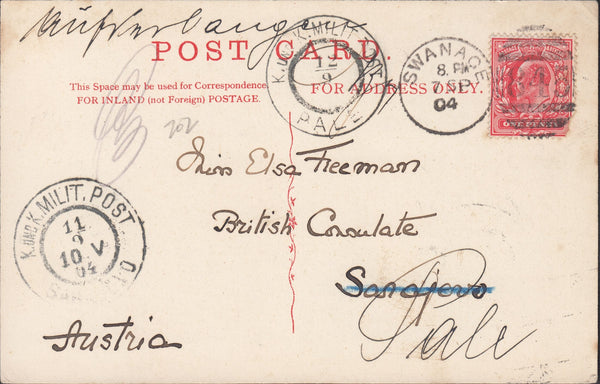 POST CARD.
This Space may be used for Correspondence
FOR INLAND (not Foreign) POSTAGE.
FOR ADDRESS ONLY.
K. UND K. MILIT. POST
12
9
PALE
SWANAGE
8. PM
7 SP
04
202
Miss Elsa Freeman
British Consulate
Sarajevo
Pale
Austria
K. UND K. MILIT. POST
11
9
10 V
04